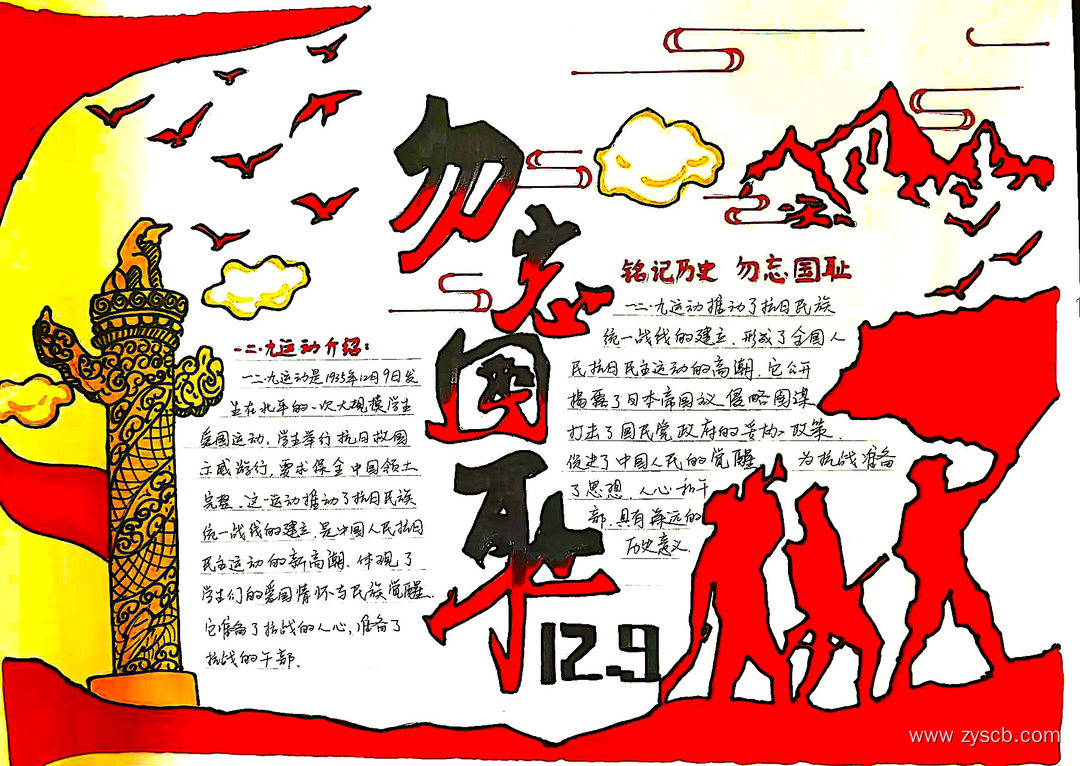 勿忘國耻
12.9
一二·九运动介绍:
一二·九运动是1935年12月9日发
生在北平的一次大规模学生
爱国运动,学生举行抗日救国
示威游行,要求保全中国领土
完整。这一运动推动了抗日民族
统一战线的建立,是中国人民抗日
民主运动的新高潮,体现了
学生们的爱国情怀与民族觉醒。
它准备了抗战的人心,准备了
抗战的干部。
铭记历史 勿忘国耻
一二·九运动推动了抗日民族
统一战线的建立,形成了全国人
民抗日民主运动的高潮,它公开
揭露了日本帝国议侵略图谋
打击了国民党政府的妥协政策,
促进了中国人民的觉醒 为抗战准备
了思想、人心和干
部,具有深远的
历史意义。
www.zyscb.com